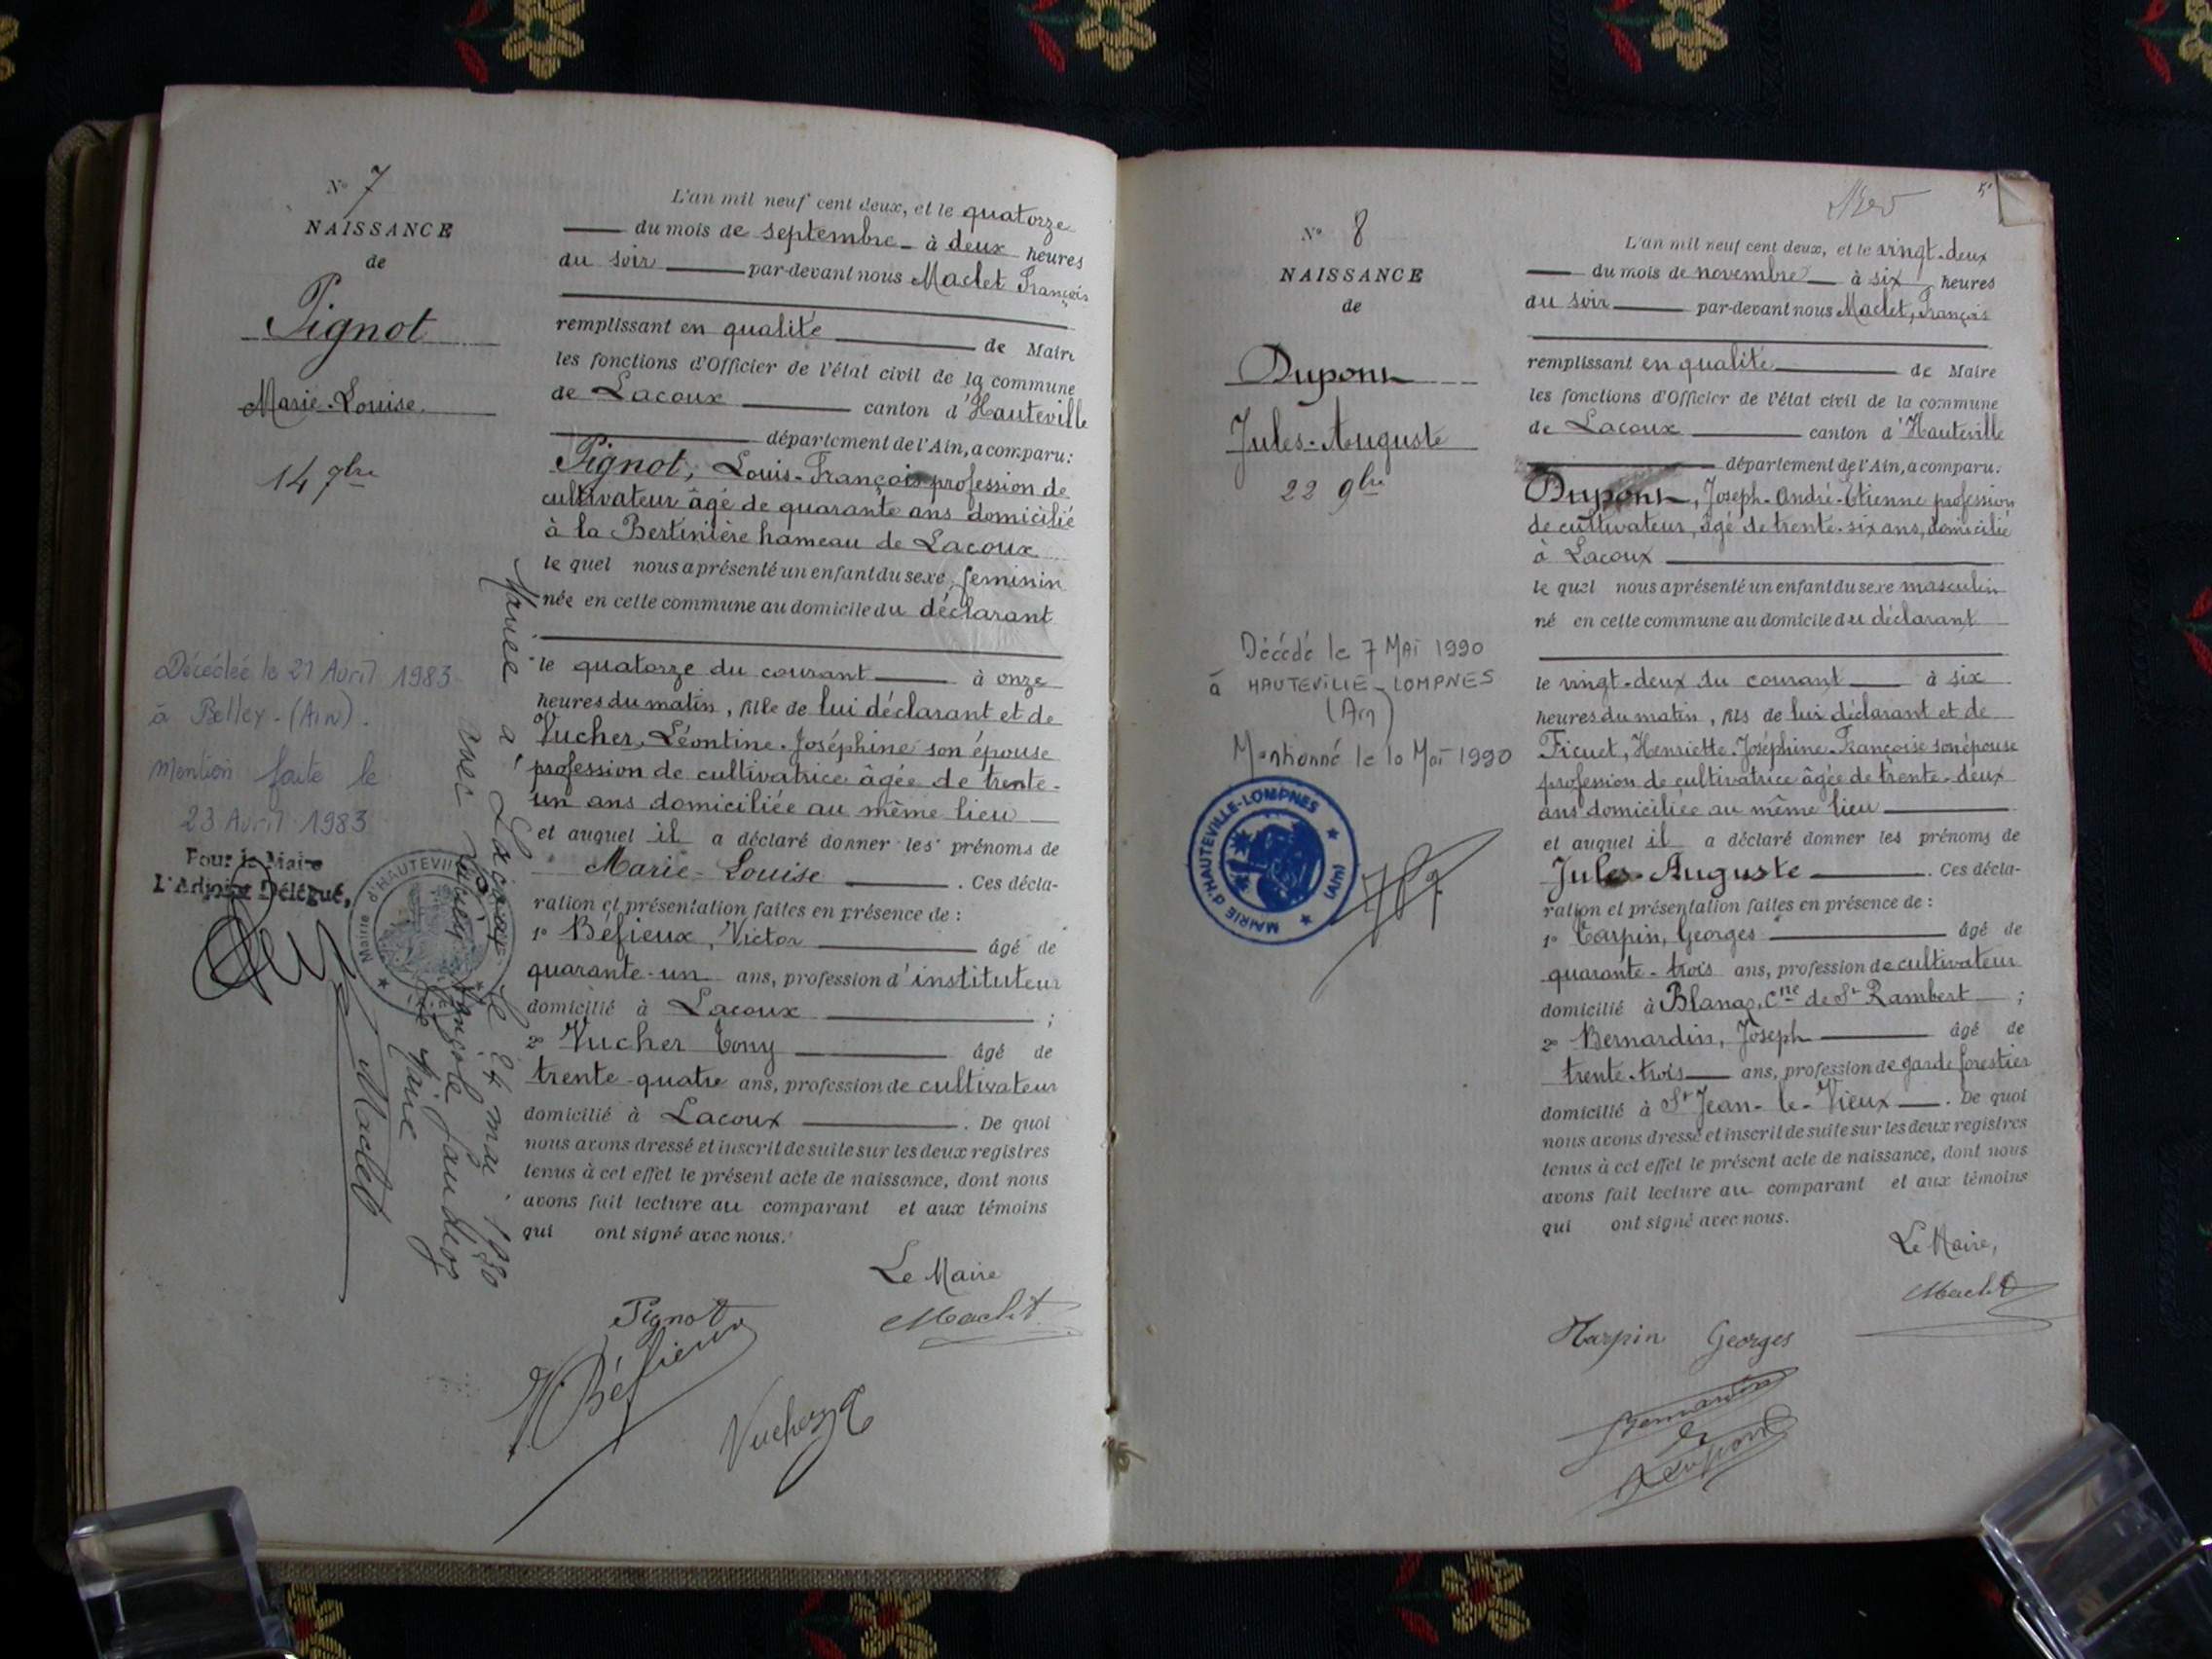 N° 7
NAISSANCE
de
Pignot
Marie-Louise
14 7bre
L'an mil neuf cent deux, et le quatorze
du mois de septembre à deux heures
du soir par-devant nous Maclet François
remplissant en qualité de Maire
les fonctions d'Officier de l'état civil de la commune
de Lacoux canton d'Hauteville
département de l'Ain, a comparu:
Pignot, Louis-François profession de
cultivateur âgé de quarante ans domicilié
à la Bertinière hameau de Lacoux
le quel nous a présenté un enfant du sexe feminin
née en cette commune au domicile du déclarant
le quatorze du courant à onze
heures du matin, fille de lui déclarant et de
Vucher, Léontine-Joséphine son épouse
profession de cultivatrice âgée de trente-
un ans domiciliée au même lieu
et auquel il a déclaré donner les prénoms de
Marie-Louise. Ces décla-
ration et présentation faites en présence de :
1° Béfieux, Victor âgé de
quarante-un ans, profession d'instituteur
domicilié à Lacoux ;
2° Vucher Tony âgé de
trente-quatre ans, profession de cultivateur
domicilié à Lacoux. De quoi
nous avons dressé et inscrit de suite sur les deux registres
tenus à cet effet le présent acte de naissance, dont nous
avons fait lecture au comparant et aux témoins
qui ont signé avec nous.
Le Maire
Pignot
Maclet
V Béfieux
Vucher
Mariée à Lacoux le 24 mai 1930
avec
Le Maire
Maclet
Décédée le 21 Avril 1983
à Belley - (Ain).
Mention faite le
23 Avril 1983
Pour le Maire
L'Adjoint Délégué,
Mairie d'HAUTEVILLE
5
N° 8
NAISSANCE
de
Dupont
Jules-Auguste
22 9bre
L'an mil neuf cent deux, et le vingt-deux
du mois de novembre à six heures
du soir par-devant nous Maclet, François
remplissant en qualité de Maire
les fonctions d'Officier de l'état civil de la commune
de Lacoux canton d'Hauteville
département de l'Ain, a comparu:
Dupont, Joseph-André-Etienne profession
de cultivateur, âgé de trente-six ans, domicilié
à Lacoux
le quel nous a présenté un enfant du sexe masculin
né en cette commune au domicile du déclarant
le vingt-deux du courant à six
heures du matin, fils de lui déclarant et de
Ficuet, Henriette-Joséphine-Françoise son épouse
profession de cultivatrice âgée de trente-deux
ans domiciliée au même lieu
et auquel il a déclaré donner les prénoms de
Jules-Auguste. Ces décla-
ration et présentation faites en présence de :
1° Tarpin, Georges âgé de
quarante-trois ans, profession de cultivateur
domicilié à Blanaz, Cne de St Rambert ;
2° Bernardin, Joseph âgé de
trente-trois ans, profession de garde forestier
domicilié à St Jean-le-Vieux. De quoi
nous avons dressé et inscrit de suite sur les deux registres
tenus à cet effet le présent acte de naissance, dont nous
avons fait lecture au comparant et aux témoins
qui ont signé avec nous.
Le Maire,
Maclet
Tarpin Georges
Bernardin
Dupont
Décédé le 7 Mai 1990
à HAUTEVILLE-LOMPNES
(Ain)
Mentionné le 10 Mai 1990
MAIRIE d'HAUTEVILLE-LOMPNES (Ain)